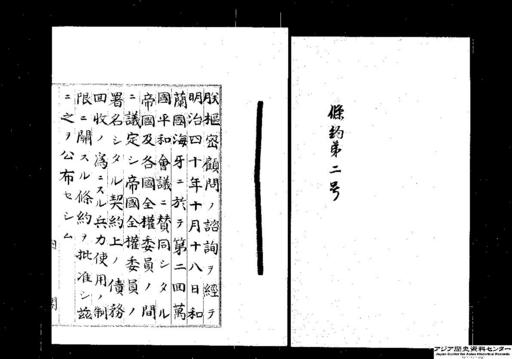 條約第二号
朕樞密顧問ノ諮詢ヲ經テ
明治四十年十月十八日和
蘭國海牙ニ於テ第二回萬
國平和會議ニ賛同シタル
帝國及各國全權委員ノ間
ニ議定シ帝國全權委員ノ
署名シタル契約上ノ債務
回收ノ爲ニスル兵力使用ノ制
限ニ關スル條約ヲ批准シ茲
ニ之ヲ公布セシム
内閣
アジア歴史資料センター
Japan Center for Asian Historical Records